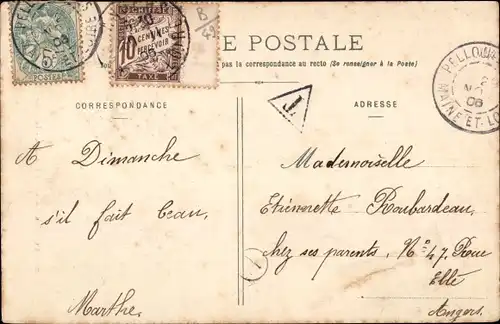 E POSTALE
pas la correspondance au recto (Se renseigner à la Poste)
CORRESPONDANCE
ADRESSE
A Dimanche
s'il fait beau,
Marthe.
Mademoiselle
Etiennette Roubardeau,
chez ses parents, No 47, Rue
Elté
Angers.
T
10
CENTIMES
PERCEVOIR
TAXE
CHIFFRE
POSTES
5
PELLOU
MAINE-ET-LO
06
1